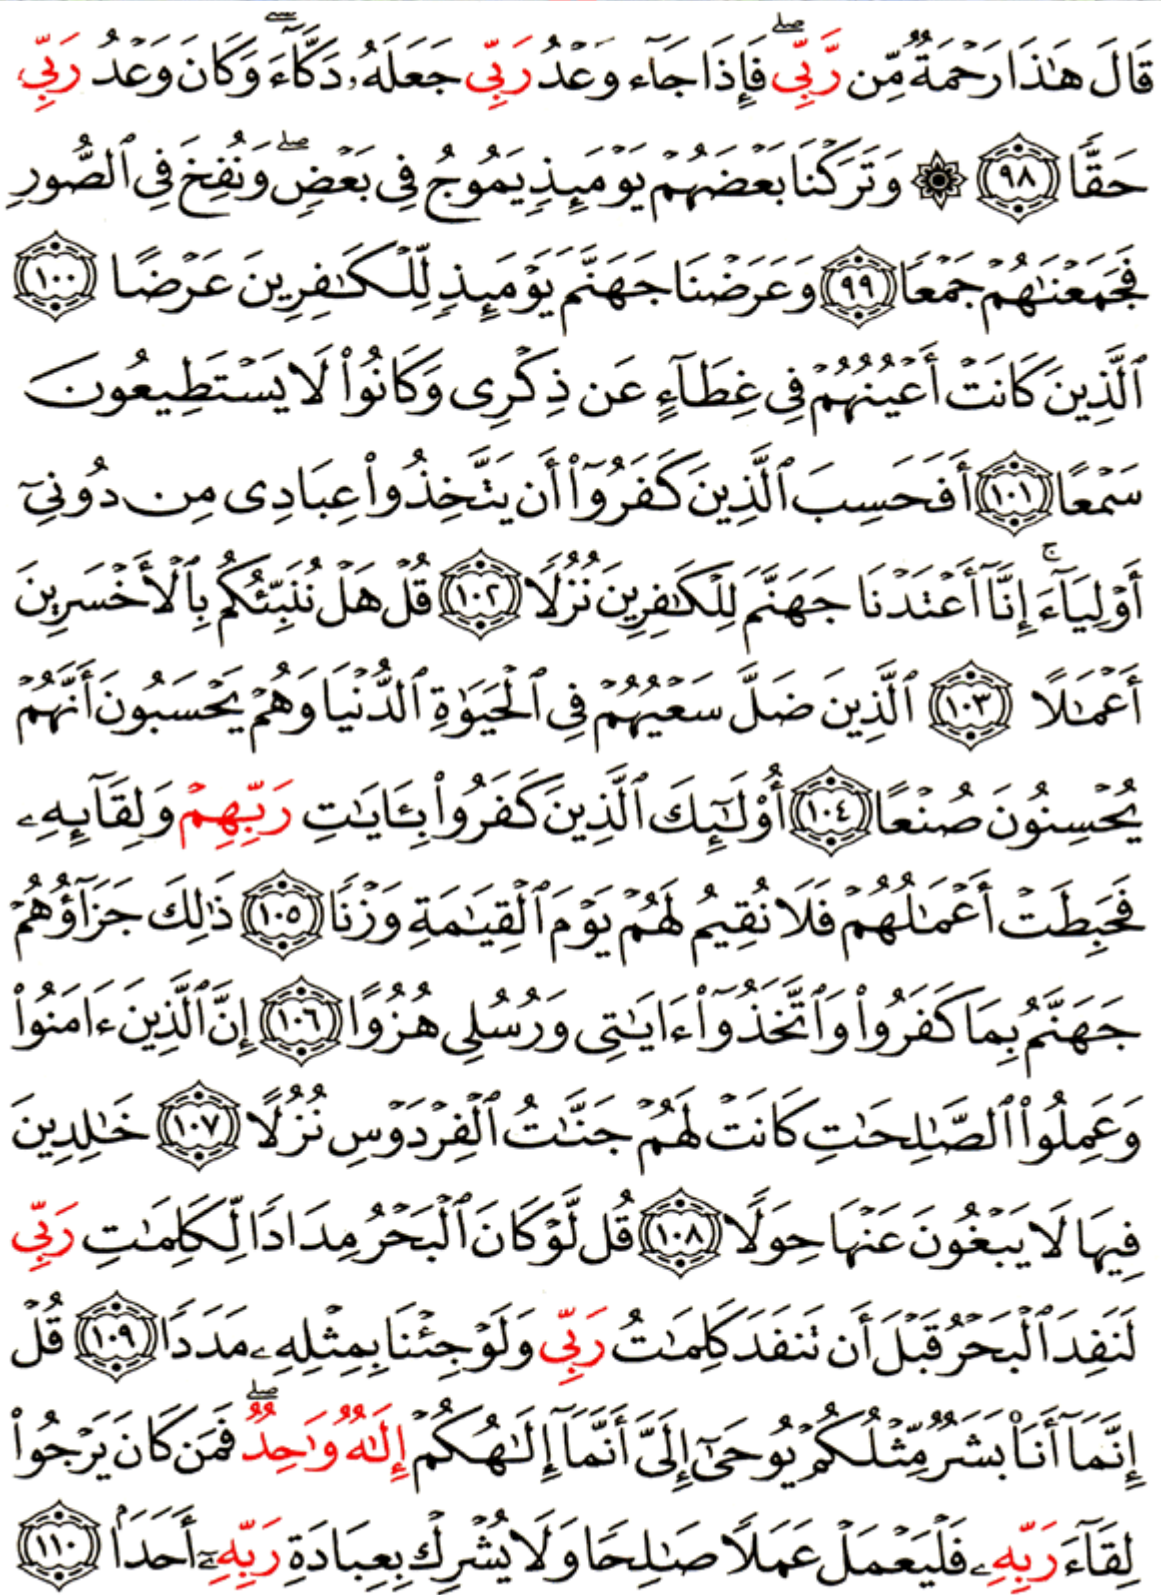 قَالَ هَٰذَا رَحْمَةٌ مِّن رَّبِّي ۖ فَإِذَا جَآءَ وَعْدُ رَبِّي جَعَلَهُۥ دَكَّآءَ ۖ وَكَانَ وَعْدُ رَبِّي
حَقًّا ﴿٩٨﴾ ۞ وَتَرَكْنَا بَعْضَهُمْ يَوْمَئِذٍ يَمُوجُ فِي بَعْضٍ ۖ وَنُفِخَ فِي ٱلصُّورِ
فَجَمَعْنَٰهُمْ جَمْعًا ﴿٩٩﴾ وَعَرَضْنَا جَهَنَّمَ يَوْمَئِذٍ لِّلْكَٰفِرِينَ عَرْضًا ﴿١٠٠﴾
ٱلَّذِينَ كَانَتْ أَعْيُنُهُمْ فِي غِطَآءٍ عَن ذِكْرِي وَكَانُوا۟ لَا يَسْتَطِيعُونَ
سَمْعًا ﴿١٠١﴾ أَفَحَسِبَ ٱلَّذِينَ كَفَرُوٓا۟ أَن يَتَّخِذُوا۟ عِبَادِي مِن دُونِيٓ
أَوْلِيَآءَ ۚ إِنَّآ أَعْتَدْنَا جَهَنَّمَ لِلْكَٰفِرِينَ نُزُلًا ﴿١٠٢﴾ قُلْ هَلْ نُنَبِّئُكُم بِٱلْأَخْسَرِينَ
أَعْمَٰلًا ﴿١٠٣﴾ ٱلَّذِينَ ضَلَّ سَعْيُهُمْ فِي ٱلْحَيَوٰةِ ٱلدُّنْيَا وَهُمْ يَحْسَبُونَ أَنَّهُمْ
يُحْسِنُونَ صُنْعًا ﴿١٠٤﴾ أُو۟لَٰٓئِكَ ٱلَّذِينَ كَفَرُوا۟ بِـَٔايَٰتِ رَبِّهِمْ وَلِقَآئِهِۦ
فَحَبِطَتْ أَعْمَٰلُهُمْ فَلَا نُقِيمُ لَهُمْ يَوْمَ ٱلْقِيَٰمَةِ وَزْنًا ﴿١٠٥﴾ ذَٰلِكَ جَزَآؤُهُمْ
جَهَنَّمُ بِمَا كَفَرُوا۟ وَٱتَّخَذُوٓا۟ ءَايَٰتِي وَرُسُلِي هُزُوًا ﴿١٠٦﴾ إِنَّ ٱلَّذِينَ ءَامَنُوا۟
وَعَمِلُوا۟ ٱلصَّٰلِحَٰتِ كَانَتْ لَهُمْ جَنَّٰتُ ٱلْفِرْدَوْسِ نُزُلًا ﴿١٠٧﴾ خَٰلِدِينَ
فِيهَا لَا يَبْغُونَ عَنْهَا حِوَلًا ﴿١٠٨﴾ قُل لَّوْ كَانَ ٱلْبَحْرُ مِدَادًا لِّكَلِمَٰتِ رَبِّي
لَنَفِدَ ٱلْبَحْرُ قَبْلَ أَن تَنفَدَ كَلِمَٰتُ رَبِّي وَلَوْ جِئْنَا بِمِثْلِهِۦ مَدَدًا ﴿١٠٩﴾ قُلْ
إِنَّمَآ أَنَا۠ بَشَرٌ مِّثْلُكُمْ يُوحَىٰٓ إِلَيَّ أَنَّمَآ إِلَٰهُكُمْ إِلَٰهٌ وَٰحِدٌ ۖ فَمَن كَانَ يَرْجُوا۟
لِقَآءَ رَبِّهِۦ فَلْيَعْمَلْ عَمَلًا صَٰلِحًا وَلَا يُشْرِكْ بِعِبَادَةِ رَبِّهِۦٓ أَحَدًۢا ﴿١١٠﴾